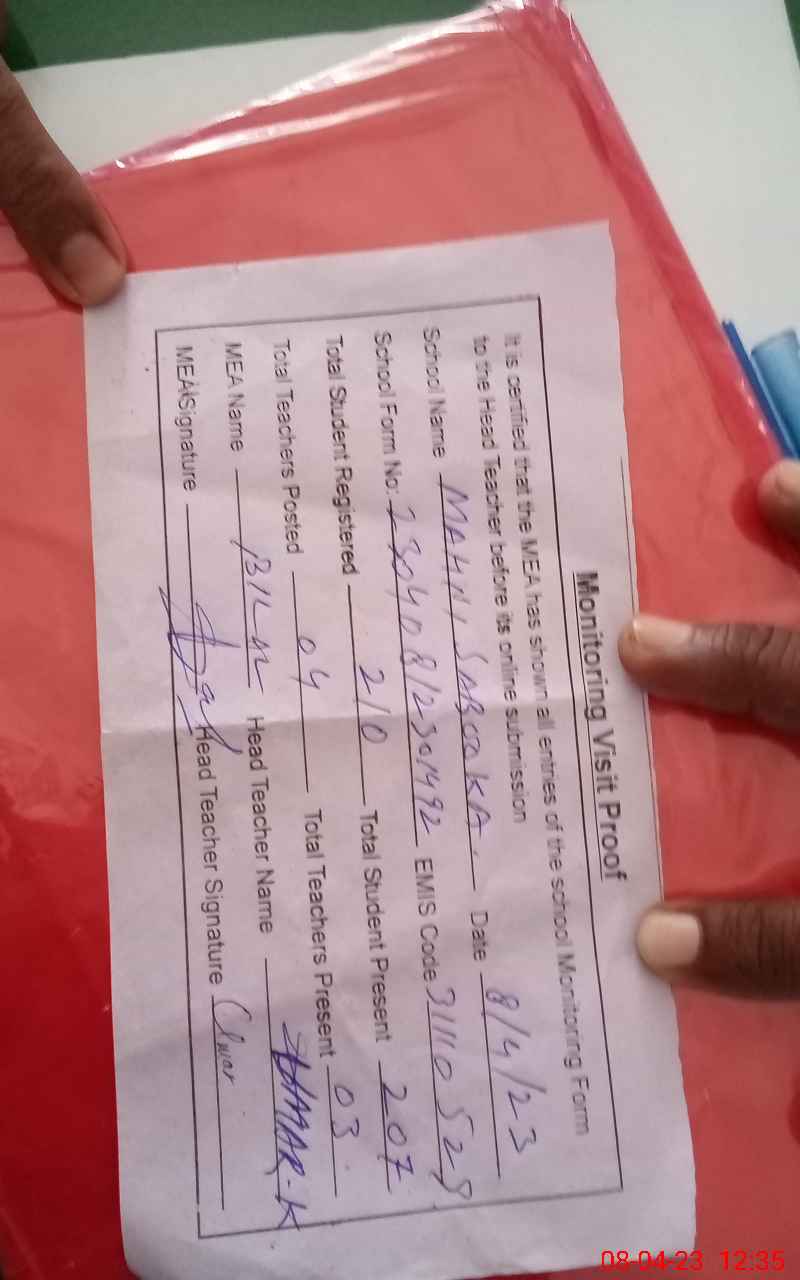 Monitoring Visit Proof
It is certified that the MEA has shown all entries of the school Monitoring Form
to the Head Teacher before its online submission
School Name MAHNI SABOOKA. Date 8/4/23
School Form No: 23040812301492 EMIS Code 31110528
Total Student Registered 210 Total Student Present 207
Total Teachers Posted 04 Total Teachers Present 03
MEA Name Head Teacher Name AMAR-K
MEA Signature Head Teacher Signature
08-04-23 12:35